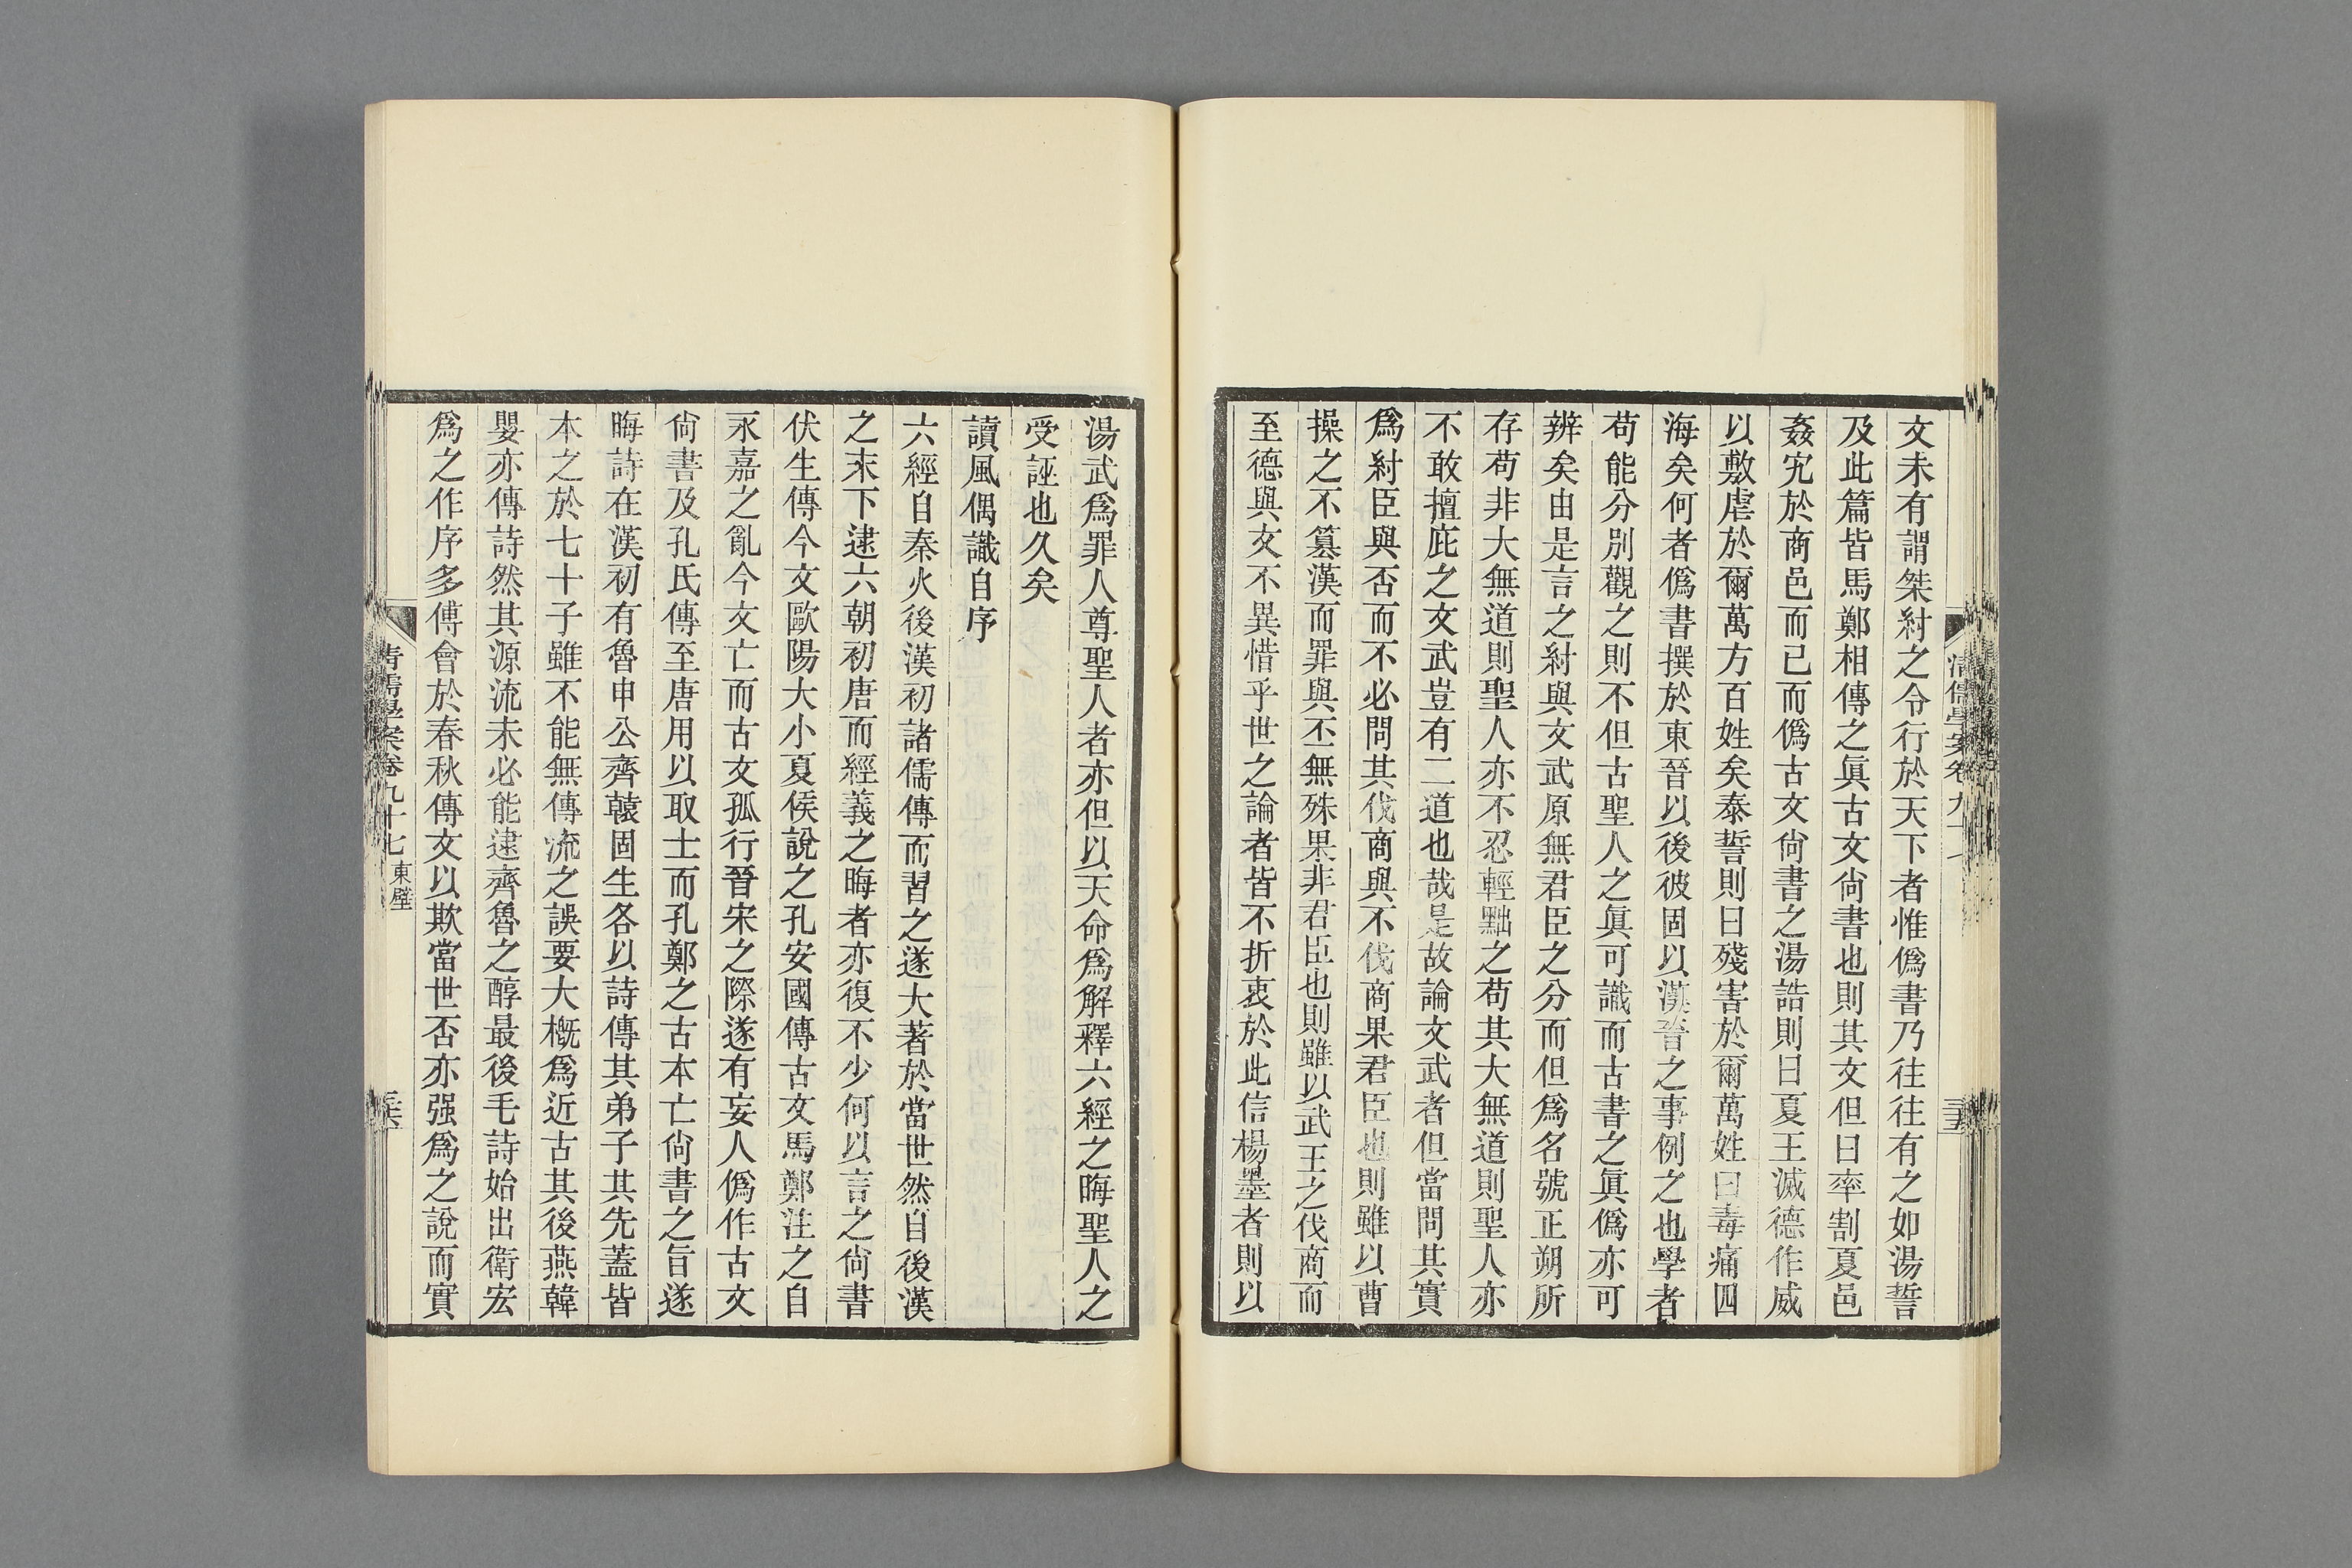 文未有謂桀紂之令行於天下者惟僞書乃往往有之如湯誓
及此篇皆馬鄭相傳之眞古文尙書也則其文但曰率割夏邑
姦宄於商邑而已而僞古文尙書之湯誥則曰夏王滅德作威
以敷虐於爾萬方百姓矣泰誓則曰殘害於爾萬姓曰毒痡四
海矣何者僞書撰於東晉以後彼固以漢晉之事例之也學者
苟能分別觀之則不但古聖人之眞可識而古書之眞僞亦可
辨矣由是言之紂與文武原無君臣之分而但爲名號正朔所
存苟非大無道則聖人亦不忍輕黜之苟其大無道則聖人亦
不敢擅庇之文武豈有二道也哉是故論文武者但當問其實
爲紂臣與否而不必問其伐商與不伐商果君臣也則雖以曹
操之不篡漢而罪與丕無殊果非君臣也則雖以武王之伐商而
至德與文不異惜乎世之論者皆不折衷於此信楊墨者則以
清儒學案卷九十七
三五
湯武爲罪人尊聖人者亦但以天命爲解釋六經之晦聖人之
受誣也久矣
讀風偶識自序
六經自秦火後漢初諸儒傳而習之遂大著於當世然自後漢
之末下逮六朝初唐而經義之晦者亦復不少何以言之尙書
伏生傳今文歐陽大小夏侯說之孔安國傳古文馬鄭注之自
永嘉之亂今文亡而古文孤行晉宋之際遂有妄人僞作古文
尙書及孔氏傳至唐用以取士而孔鄭之古本亡尙書之旨遂
晦詩在漢初有魯申公齊轅固生各以詩傳其弟子其先蓋皆
本之於七十子雖不能無傳流之誤要大槪爲近古其後燕韓
嬰亦傳詩然其源流未必能逮齊魯之醇最後毛詩始出衛宏
爲之作序多傅會於春秋傳文以欺當世否亦强爲之說而實
清儒學案卷九十七 東壁
三六